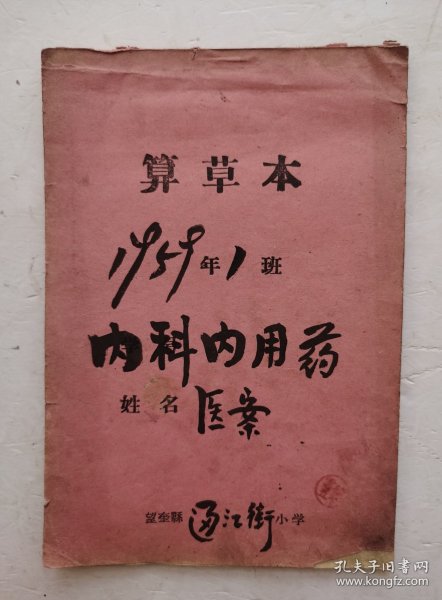 算草本
1959年1班
内科内用药
姓名医案
望奎縣通江街小学
孔夫子旧书网
www.kongfz.com